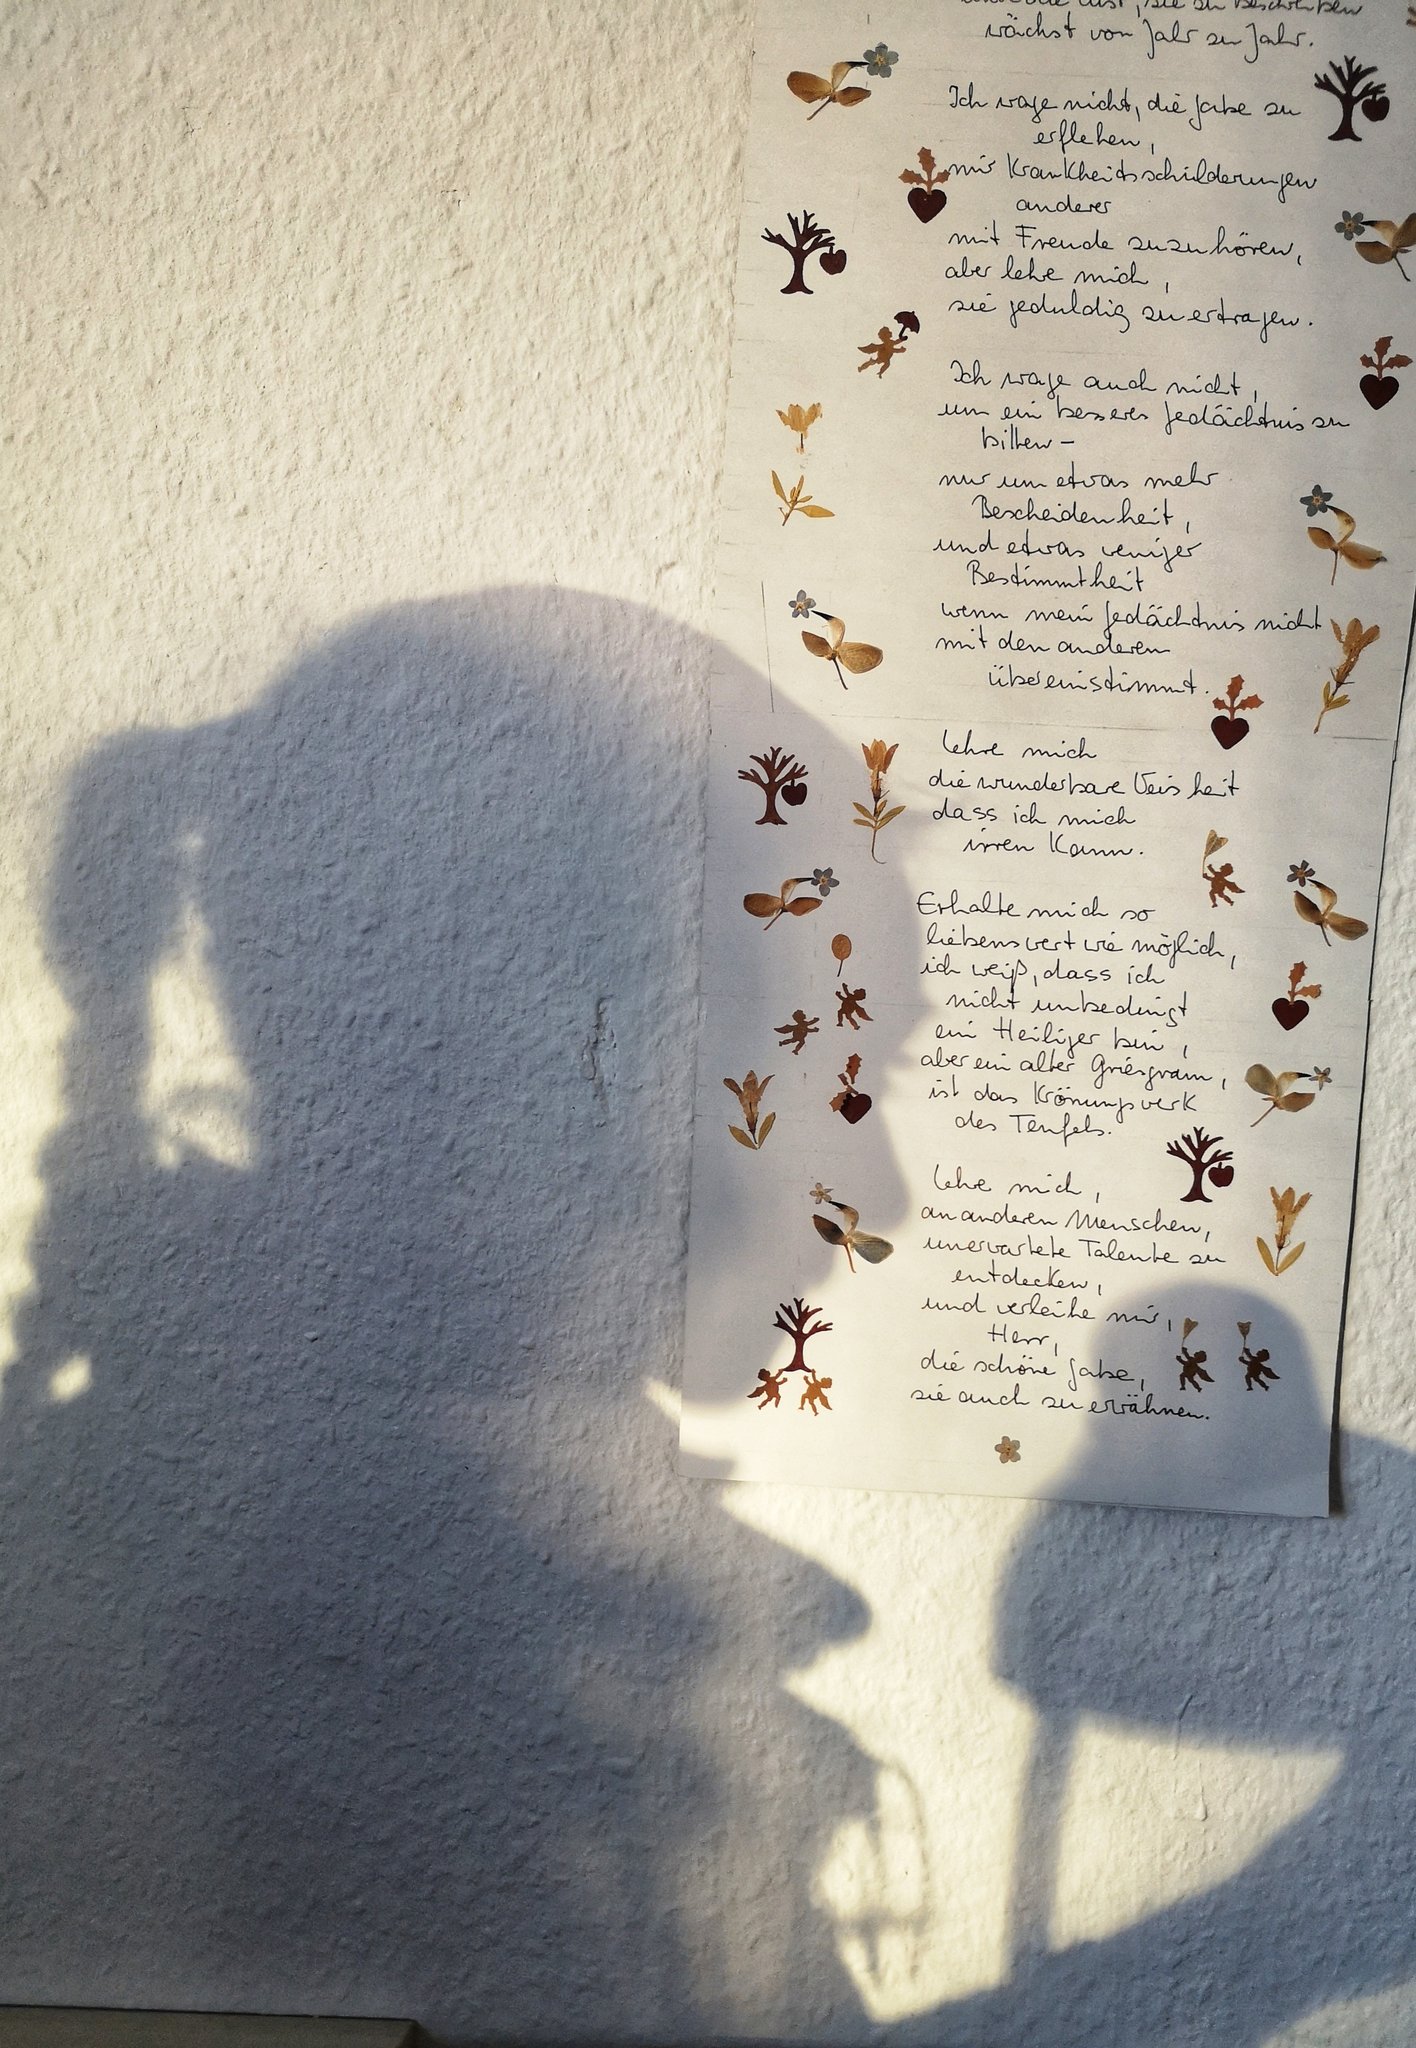 und die Lust, sie zu beschreiben
wächst von Jahr zu Jahr.
Ich wage nicht, die Gabe zu
erflehen,
mir Krankheitsschilderungen
anderer
mit Freude zuzuhören,
aber lehre mich,
sie geduldig zu ertragen.
Ich wage auch nicht,
um ein besseres Gedächtnis zu
bitten –
nur um etwas mehr
Bescheidenheit,
und etwas weniger
Bestimmtheit
wenn mein Gedächtnis nicht
mit den anderen
übereinstimmt.
Lehre mich
die wunderbare Weisheit
dass ich mich
irren kann.
Erhalte mich so
liebenswert wie möglich,
ich weiß, dass ich
nicht unbedingt
ein Heiliger bin,
aber ein alter Griesgram,
ist das Krönungswerk
des Teufels.
Lehre mich,
an anderen Menschen,
unerwartete Talente zu
entdecken,
und verleihe mir,
Herr,
die schöne Gabe,
sie auch zu erwähnen.